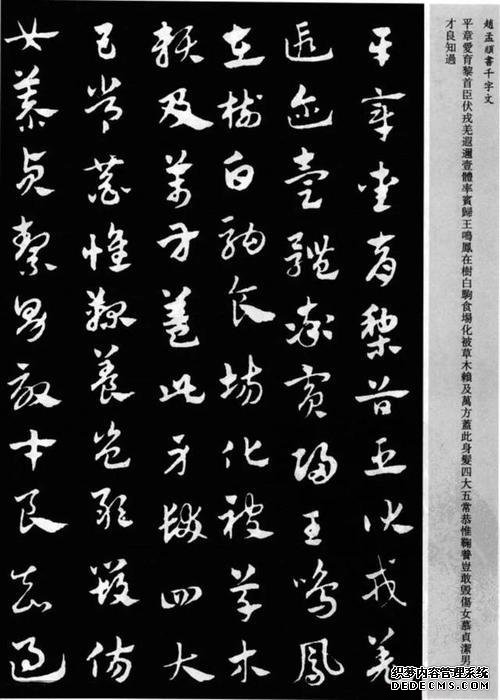 趙孟頫書千字文
平章愛育黎首臣伏戎羌遐邇壹體率賓歸王鳴鳳在樹白駒食場化被草木賴及萬方蓋此身髮四大五常恭惟鞠養豈敢毀傷女慕貞潔男
才良知過
平章愛育黎首臣伏戎羌
遐邇壹體率賓歸王鳴鳳
在樹白駒食場化被草木
賴及萬方蓋此身髮四大
五常恭惟鞠養豈敢毀傷
女慕貞絜男效才良知過
织梦内容管理系统
DEDECMS.COM